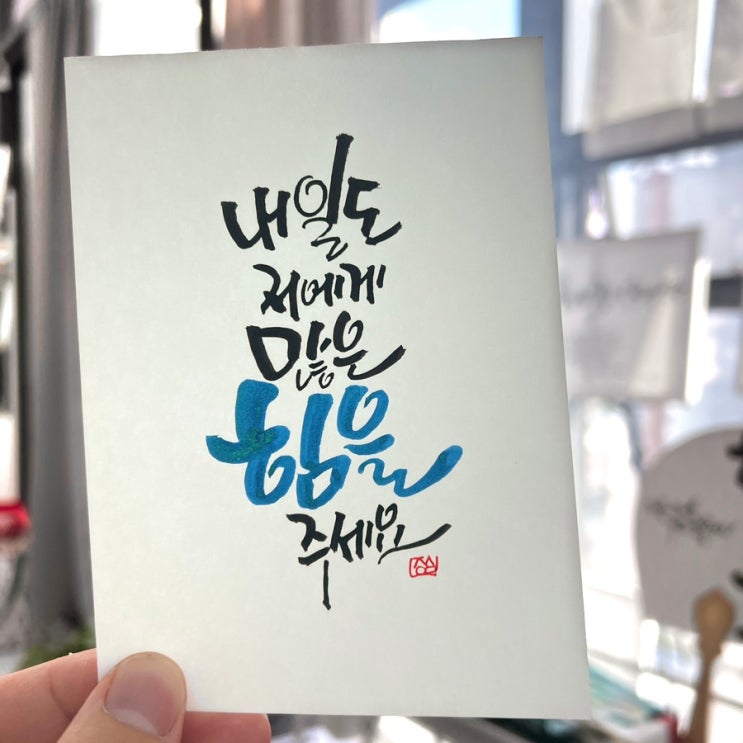 내일도
저에게
많은
힘을
주세요